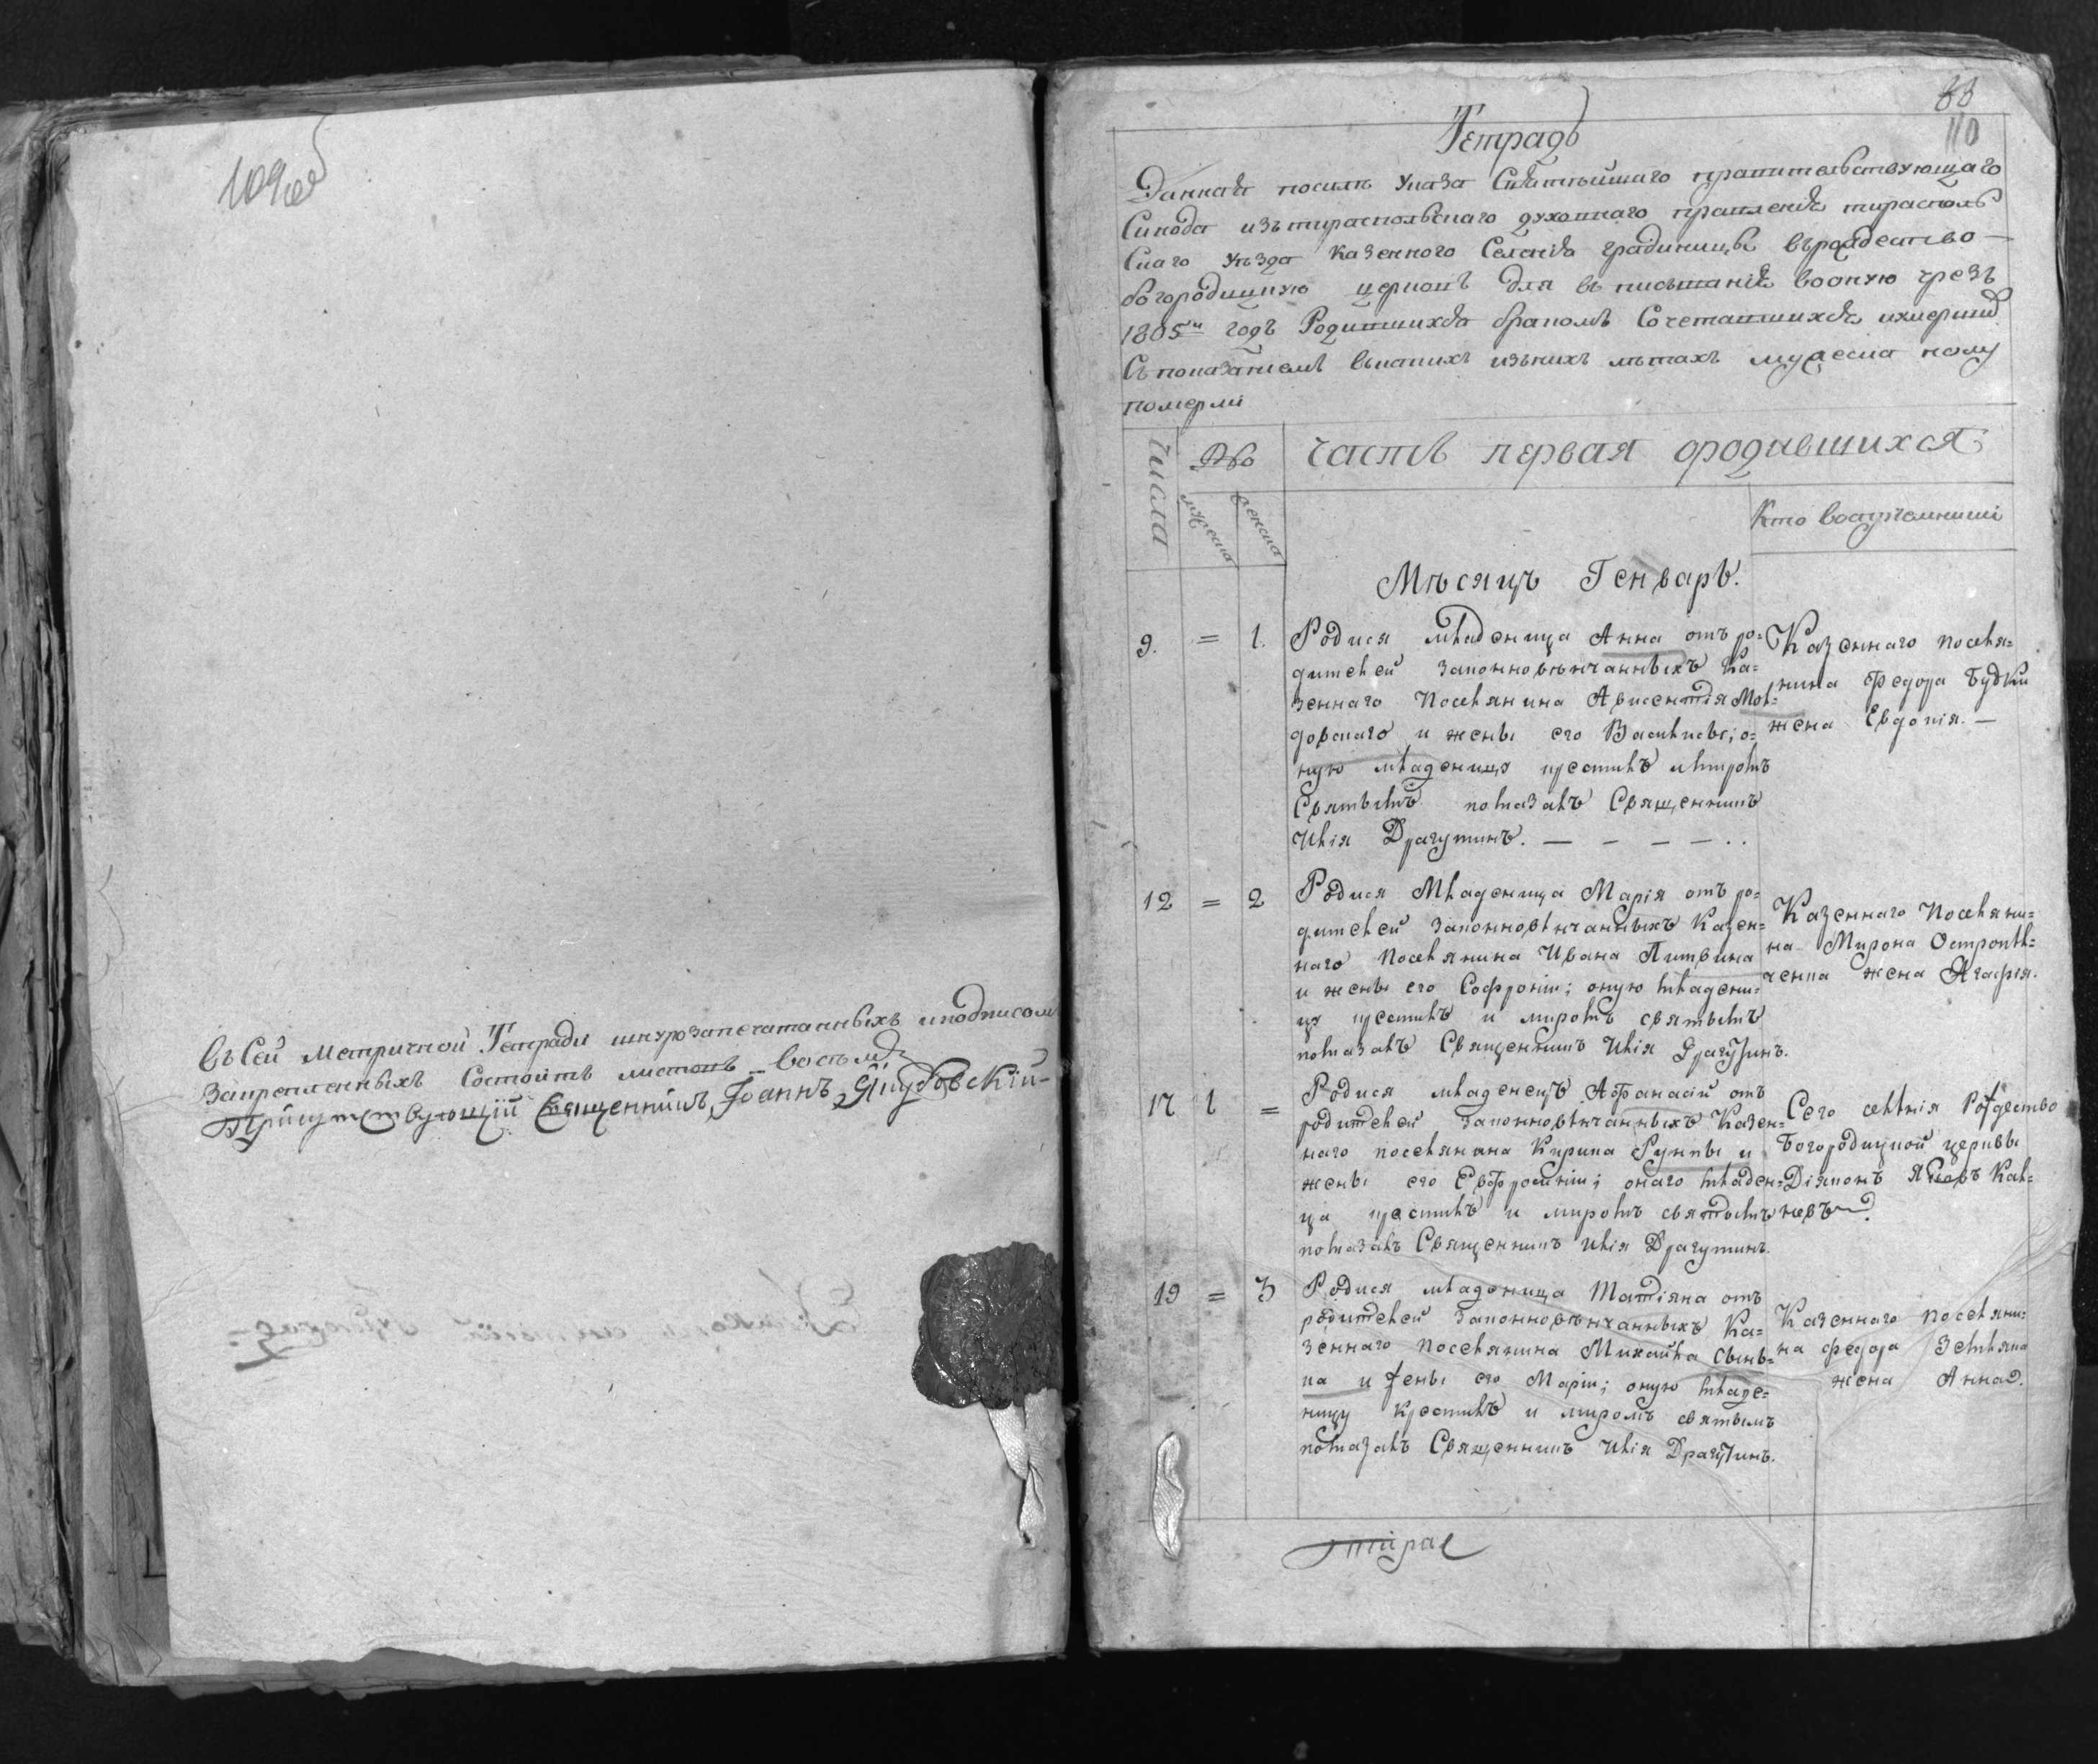 109об
въ Сей Метричной Тетради шнурозапечатанныхъ иподписом
Закрепленныхъ Состоитъ листовъ восемь
Присутствующій Священникъ Іоаннъ
88
110
Тетрадь
Данная посилѣ Указа Святѣйшаго правительствующаго
Синода изътираспольскаго духовнаго правленія тирасполь
скаго уѣзда казенного Селенія градиницы върождество
богородичную церковь для въписыванія вооную чрезъ
1805й годъ Родившихся бракомъ Сочетавшихся иумерших
Съпоказаніемъ вкакихъ изънихъ лѣтахъ мужеска полу
померли
Числа
мужеска
женска
часть первая ородившихся
Кто воспріемники
Мѣсяцъ Генварь.
9. = 1.
Родися младеница Анна отъ ро=
дителей законновѣнчанныхъ Ка=
зеннаго поселянина Авксентія Мол=
довскаго и жены его Василисы; о=
ную младеницу крестилъ имѵромъ
Святымъ помазалъ Священникъ
Илія Драгутинъ. — - — — . .
Казеннаго поселя=
нина Федора Будки
жена Евдокія. —
12 = 2
Родися Младеница Марія отъ ро=
дителей законновѣнчанныхъ Казен=
наго поселянина Ивана Литвина
и жены его Софроніи; оную младени=
цу крестилъ и миромъ святымъ
помазалъ Священникъ Илія Драгутинъ.
Казеннаго Поселяни=
на Мирона Остропол=
ченка жена Агафія.
17 1 =
Родися младенецъ Афанасій отъ
родителей законновѣнчанныхъ Казен=
наго поселянина Кирика Рункы и
жены его Евфросиніи; онаго младен=
ца крестилъ и миромъ святымъ
помазалъ Священникъ Илія Драгутинъ.
Сего селенія Рождество
Богородичной церквы
Діяконъ Яковъ Кал=
невъ.
19 = 3
Родися младеница Татіяна отъ
родителей законновѣнчанныхъ Ка=
зеннаго поселянина Михайла Свинь=
ка и жены его Маріи; оную младе=
ницу крестилъ и миромъ святымъ
помазалъ Священникъ Илія Драгутинъ.
Казеннаго поселяни=
на федора Земляка
жена Анна.
тирас